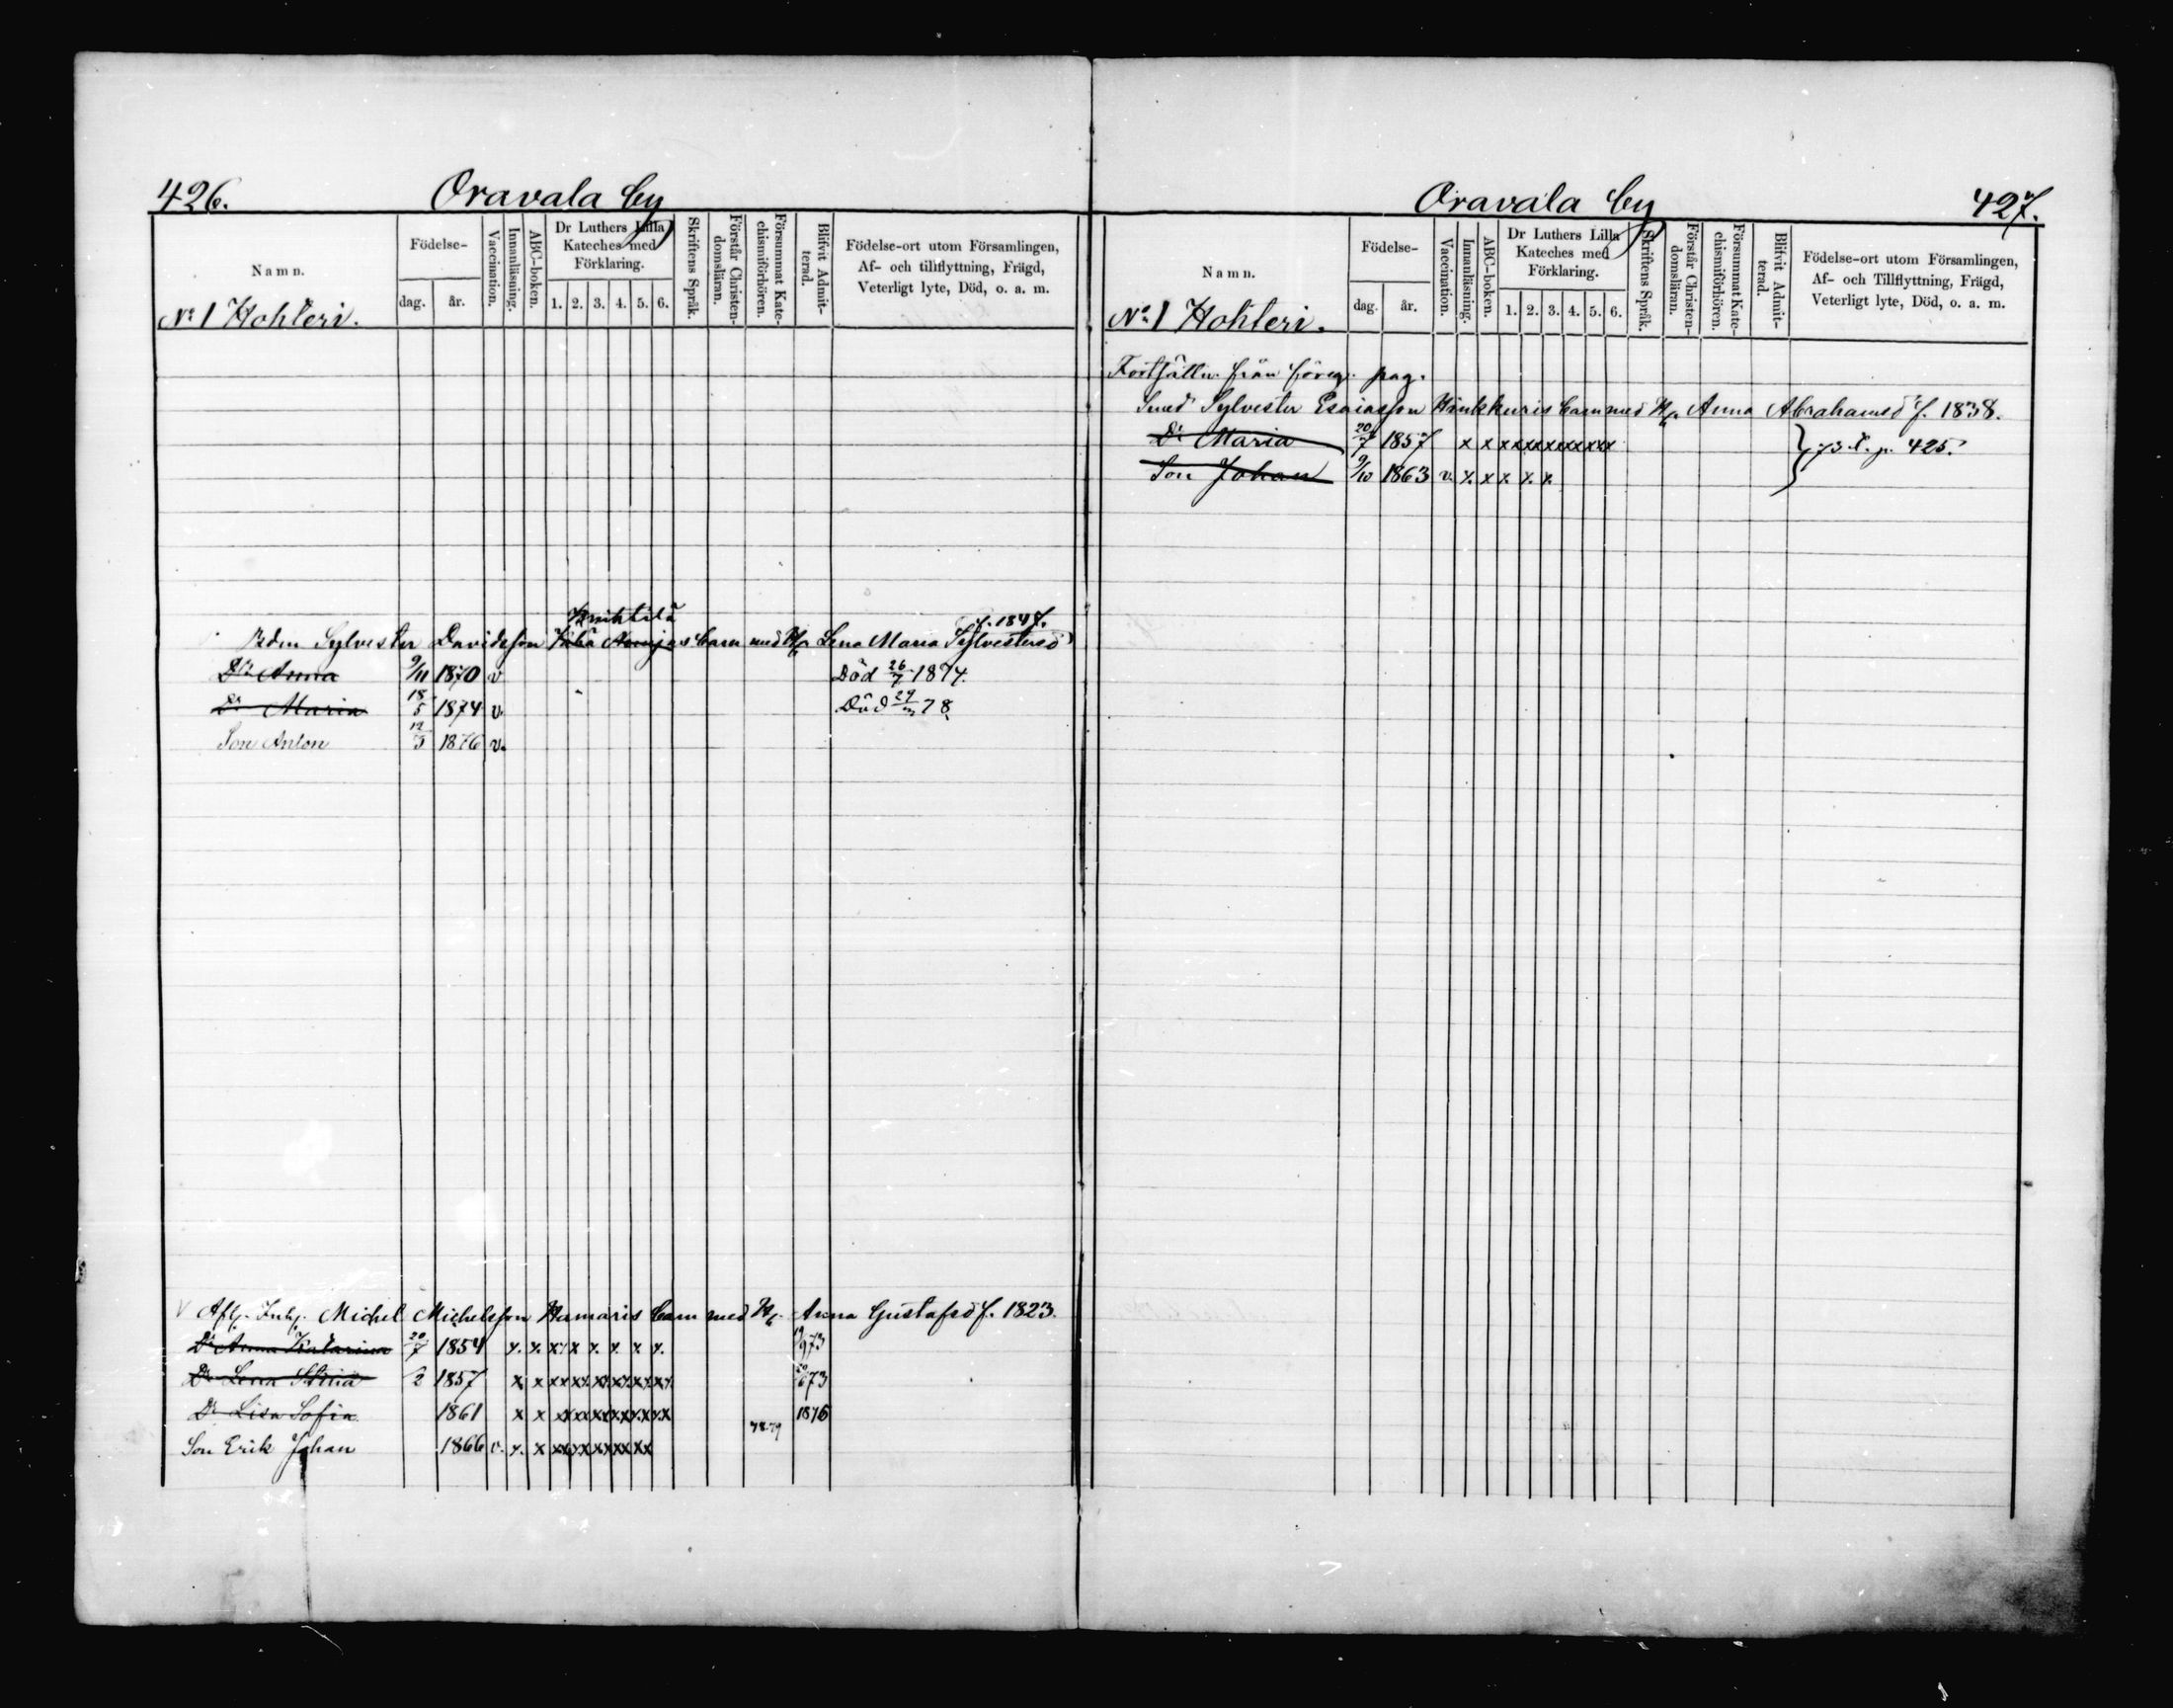 426. Oravala by
Namn.
Födelse-
dag. år.
Vaccination.
Innanläsning.
ABC-boken.
Dr Luthers Lilla Kateches med Förklaring.
1. 2. 3. 4. 5. 6.
Skriftens Språk.
Förstår Christen-domsläran.
Försummat Kate-chismiförhören.
Blifvit Admit-terad.
Födelse-ort utom Församlingen,
Af- och tillflyttning, Frägd,
Veterligt lyte, Död, o. a. m.
No 1 Hohteri.
f. 1847.
Bdn Sylvester Davidsson barn med H. Lena Maria Sylvestersd
Dr Anna 9/11 1870 v Död 26/7 1874.
Dr Maria 18/5 1874 v. Död 78.
Son Anton 12/3 1876 v.
v Afsk. Inh. Michel Michelsson Hamaris barn med H. Anna Gustafsd f. 1823.
Dr Anna Katarina 20/7 1854 x. x. x x x x. x. x x. 73
Dr Lena Stina 2 1857 x x xx xx xx xx xx xx 73
Dr Lisa Sofia 1861 x x xx xx xx xx xx xx 1876
78.79
Son Erik Johan 1866 v. x. x xx xx xx xx xx
Oravala by 427.
Namn.
Födelse-
dag. år.
Vaccination.
Innanläsning.
ABC-boken.
Dr Luthers Lilla Kateches med Förklaring.
1. 2. 3. 4. 5. 6.
Skriftens Språk.
Förstår Christen-domsläran.
Försummat Kate-chismiförhören.
Blifvit Admit-terad.
Födelse-ort utom Församlingen,
Af- och Tillflyttning, Frägd,
Veterligt lyte, Död, o. a. m.
No 1 Hohteri.
Fortsättn. från föreg. pag.
Smed Sylvester Esaiasson Kinkkuris barn med H. Anna Abrahamsd f. 1838.
Dr Maria 20/7 1857 x x xx xx xx xx xx xx } 73. t. p. 425.
Son Johan 9/10 1863 v. x. x x x. x.